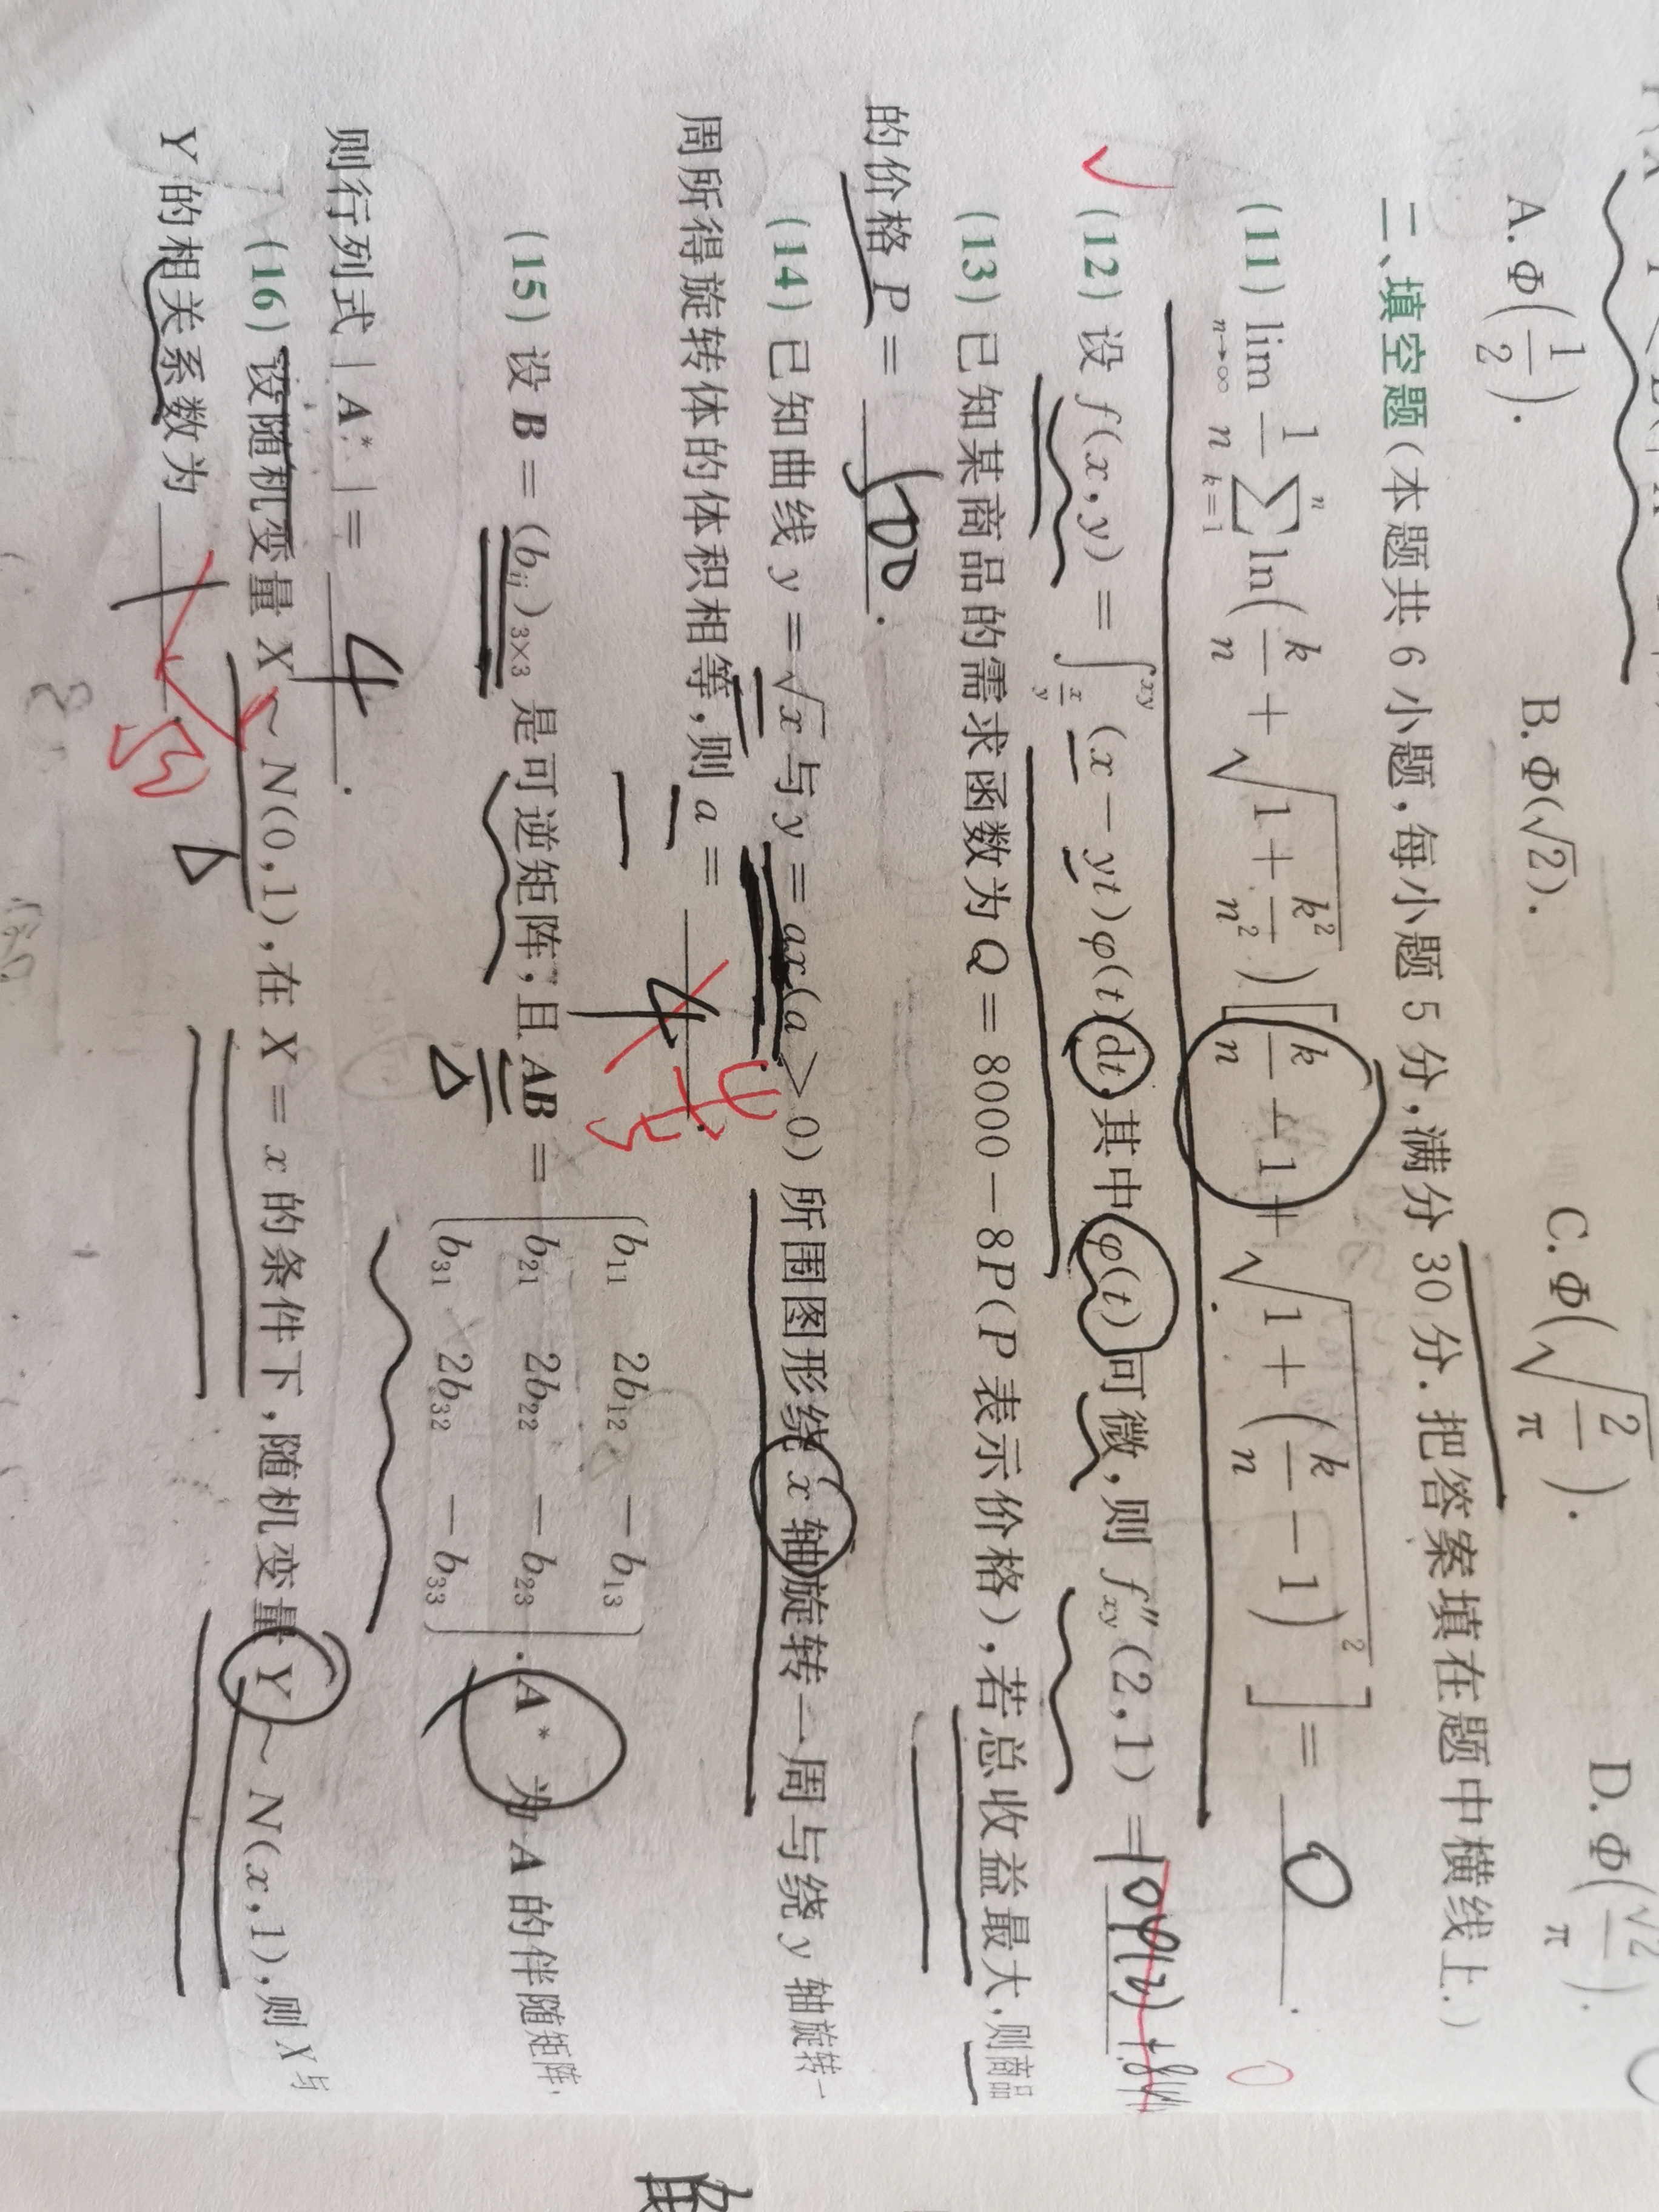 A. Φ(1/2). B. Φ(√2). C. Φ(√(2/π)). D. Φ(√2/π).
二、填空题(本题共 6 小题,每小题 5 分,满分 30 分.把答案填在题中横线上.)
(11) lim_{n→∞} 1/n ∑_{k=1}^{n} ln(k/n + √(1 + k²/n²)) [k/n − 1 + √(1 + (k/n − 1)²)] = 0 .
0
(12) 设 f(x,y) = ∫_{x/y}^{xy} (x − yt)φ(t)dt,其中 φ(t) 可微,则 f″_{xy}(2,1) =
(13) 已知某商品的需求函数为 Q = 8000 − 8P(P 表示价格),若总收益最大,则商品
的价格 P = 500 .
(14) 已知曲线 y = √x 与 y = ax(a > 0) 所围图形绕 x 轴旋转一周与绕 y 轴旋转一
周所得旋转体的体积相等,则 a = .
(15) 设 B = (b_{ij})_{3×3} 是可逆矩阵,且 AB = [b₁₁ 2b₁₂ −b₁₃; b₂₁ 2b₂₂ −b₂₃; b₃₁ 2b₃₂ −b₃₃]. A* 为 A 的伴随矩阵,
则行列式 | A* | = 4 .
(16) 设随机变量 X ~ N(0,1),在 X = x 的条件下,随机变量 Y ~ N(x,1),则 X 与
Y 的相关系数为 .